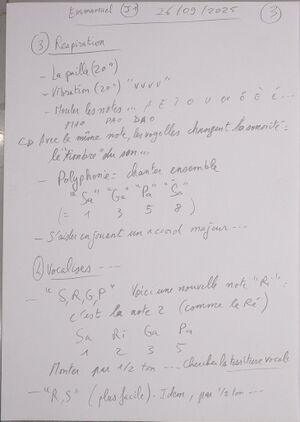 Emmanuel J1 26/09/2025 3
3 Respiration
- La paille (20")
- Vibration (20") "VVVV"
- Monter les notes... A E I O U
MAO PAO DAO
Avec la même note, les voyelles changent la sonorité =
le "timbre" du son...
- Polyphonie = chanter ensemble
"Sa" "Ga" "Pa" "Sa"
(= 1 3 5 8)
- S'aider en jouant un accord majeur...
4 Vocalises ...
- "S,R,G,P" Voici une nouvelle note "Ri" :
c'est la note 2 (comme le Ré)
Sa Ri Ga Pa
1 2 3 5
Monter par 1/2 ton ... Chercher la tessiture vocale
- "R,S" (plus facile). Idem, par 1/2 ton ...